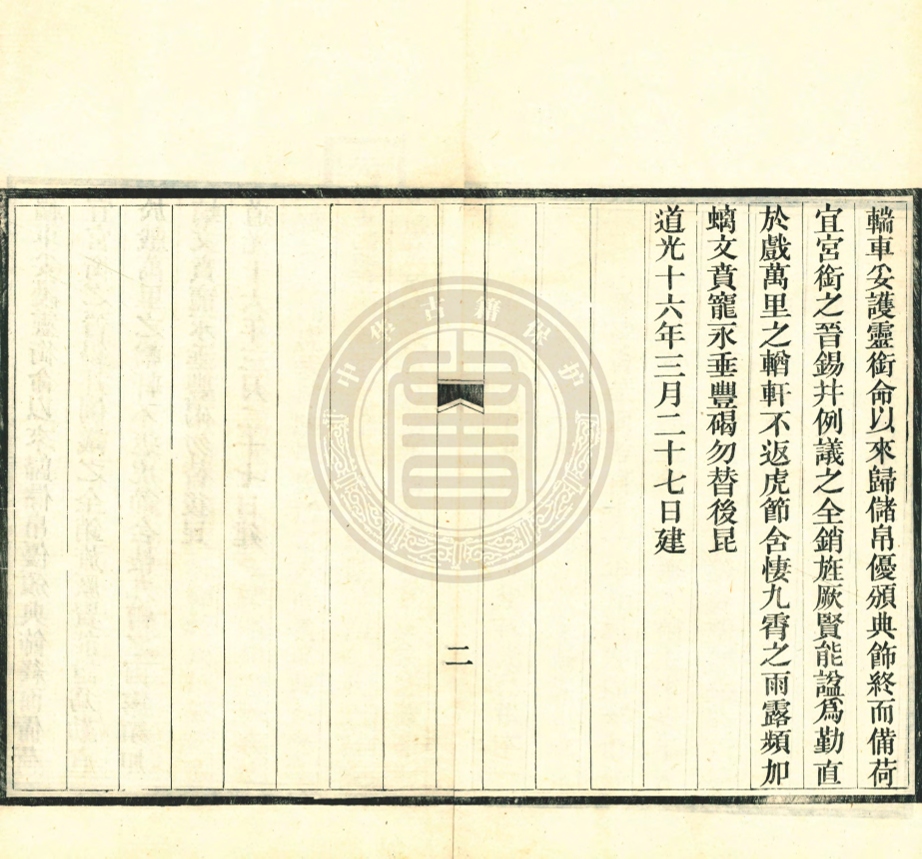 轓車妥護靈銜命以來歸儲帛優頒典飾終而備荷
宜宮銜之晉錫并例議之全銷旌厥賢能諡爲勤直
於戲萬里之輶軒不返虎節含悽九霄之雨露頻加
螭文賁寵永垂豐碣勿替後昆
道光十六年三月二十七日建
二
中华古籍保护